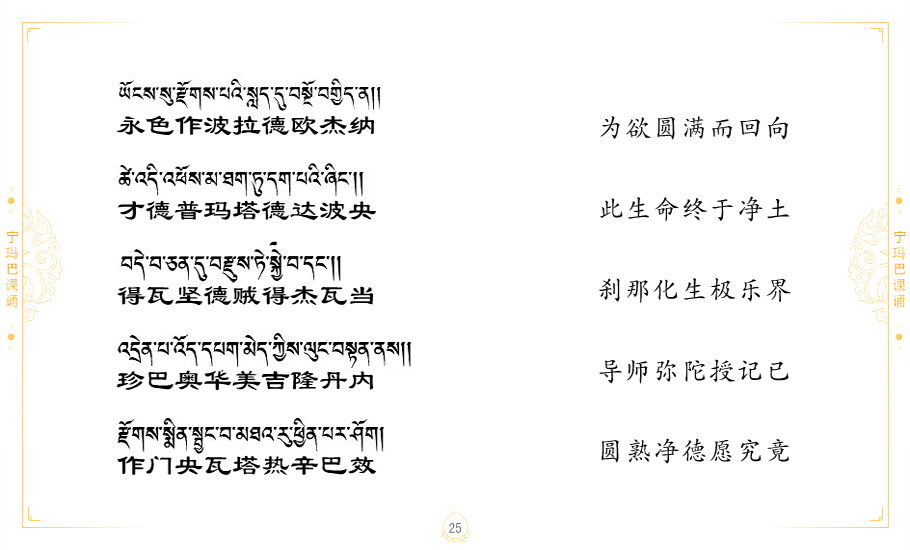 ཡོངས་སུ་རྫོགས་པའི་སླད་དུ་བསྔོ་བགྱིད་ན།།
永色作波拉德欧杰纳
为欲圆满而回向
ཚེ་འདི་འཕོས་མ་ཐག་ཏུ་དག་པའི་ཞིང་།།
才德普玛塔德达波央
此生命终于净土
བདེ་བ་ཅན་དུ་བརྫུས་ཏེ་སྐྱེ་བ་དང་།།
得瓦坚德贼得杰瓦当
刹那化生极乐界
འདྲེན་པ་འོད་དཔག་མེད་ཀྱིས་ལུང་བསྟན་ནས།།
珍巴奥华美吉隆丹内
导师弥陀授记已
རྫོགས་སྨིན་སྦྱང་བ་མཐའ་རུ་ཕྱིན་པར་ཤོག།
作门央瓦塔热辛巴效
圆熟净德愿究竟
宁玛巴课诵
宁玛巴课诵
25